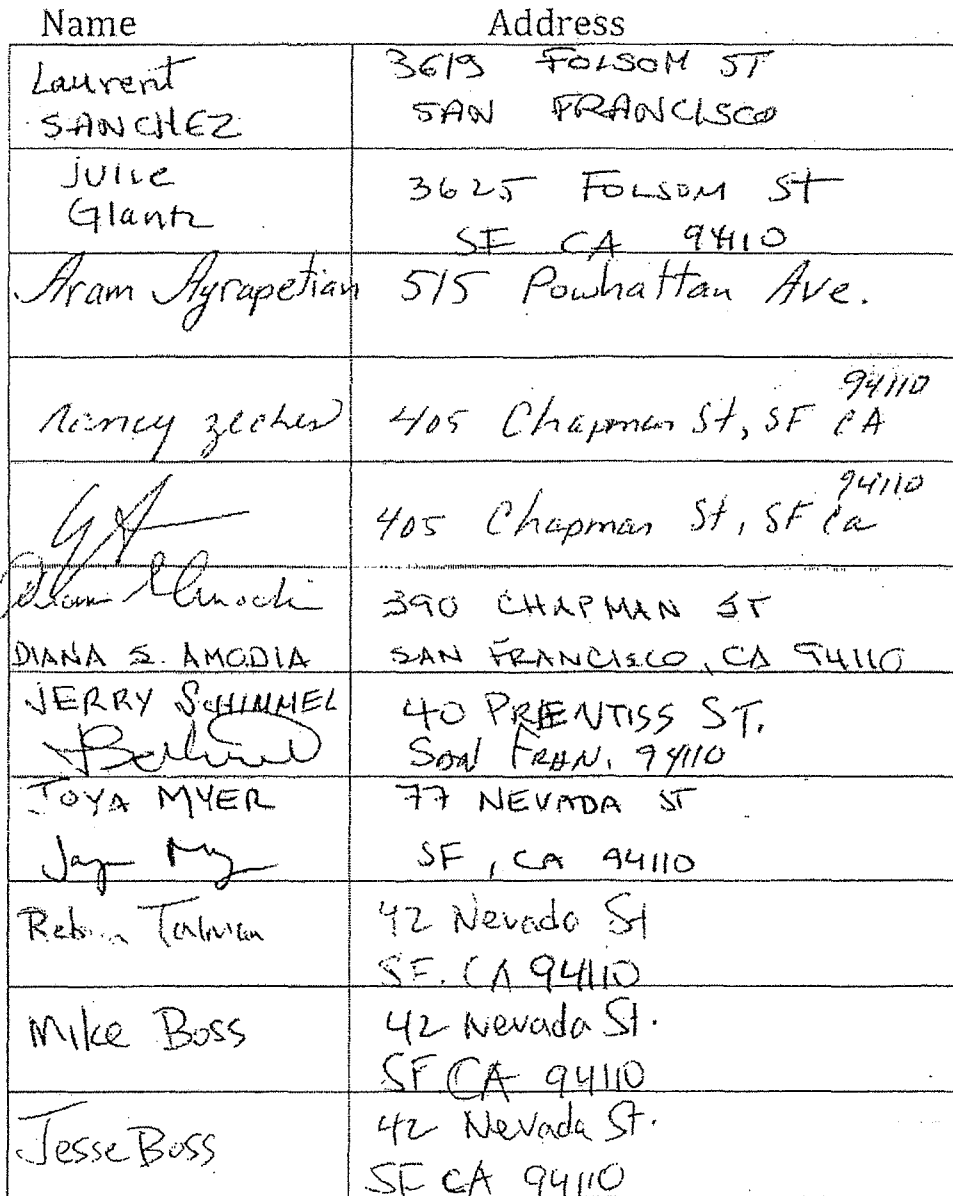 Name Address
Laurent 3619 FOLSOM ST
SANCHEZ SAN FRANCISCO
Julie 3625 FOLSOM St
Glantz SF CA 94110
Aram Ayrapetian 515 Powhattan Ave.
94110
nancy zecher 405 Chapman St, SF CA
94110
405 Chapman St, SF Ca
390 CHAPMAN ST
DIANA S. AMODIA SAN FRANCISCO, CA 94110
JERRY SCHIMMEL 40 PRENTISS ST.
SAN FRAN. 94110
JOYA MYER 77 NEVADA ST
SF, CA 94110
Talman 42 Nevada St
SF. CA 94110
Mike Boss 42 Nevada St.
SF CA 94110
Jesse Boss 42 Nevada St.
SF CA 94110